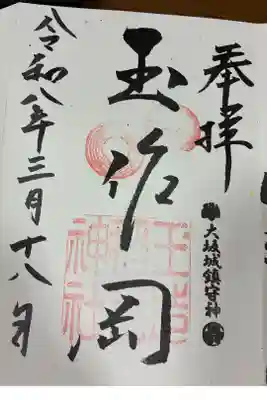 奉拝
大坂城鎮守神
玉作岡
玉造
神社
令和八年三月十八日